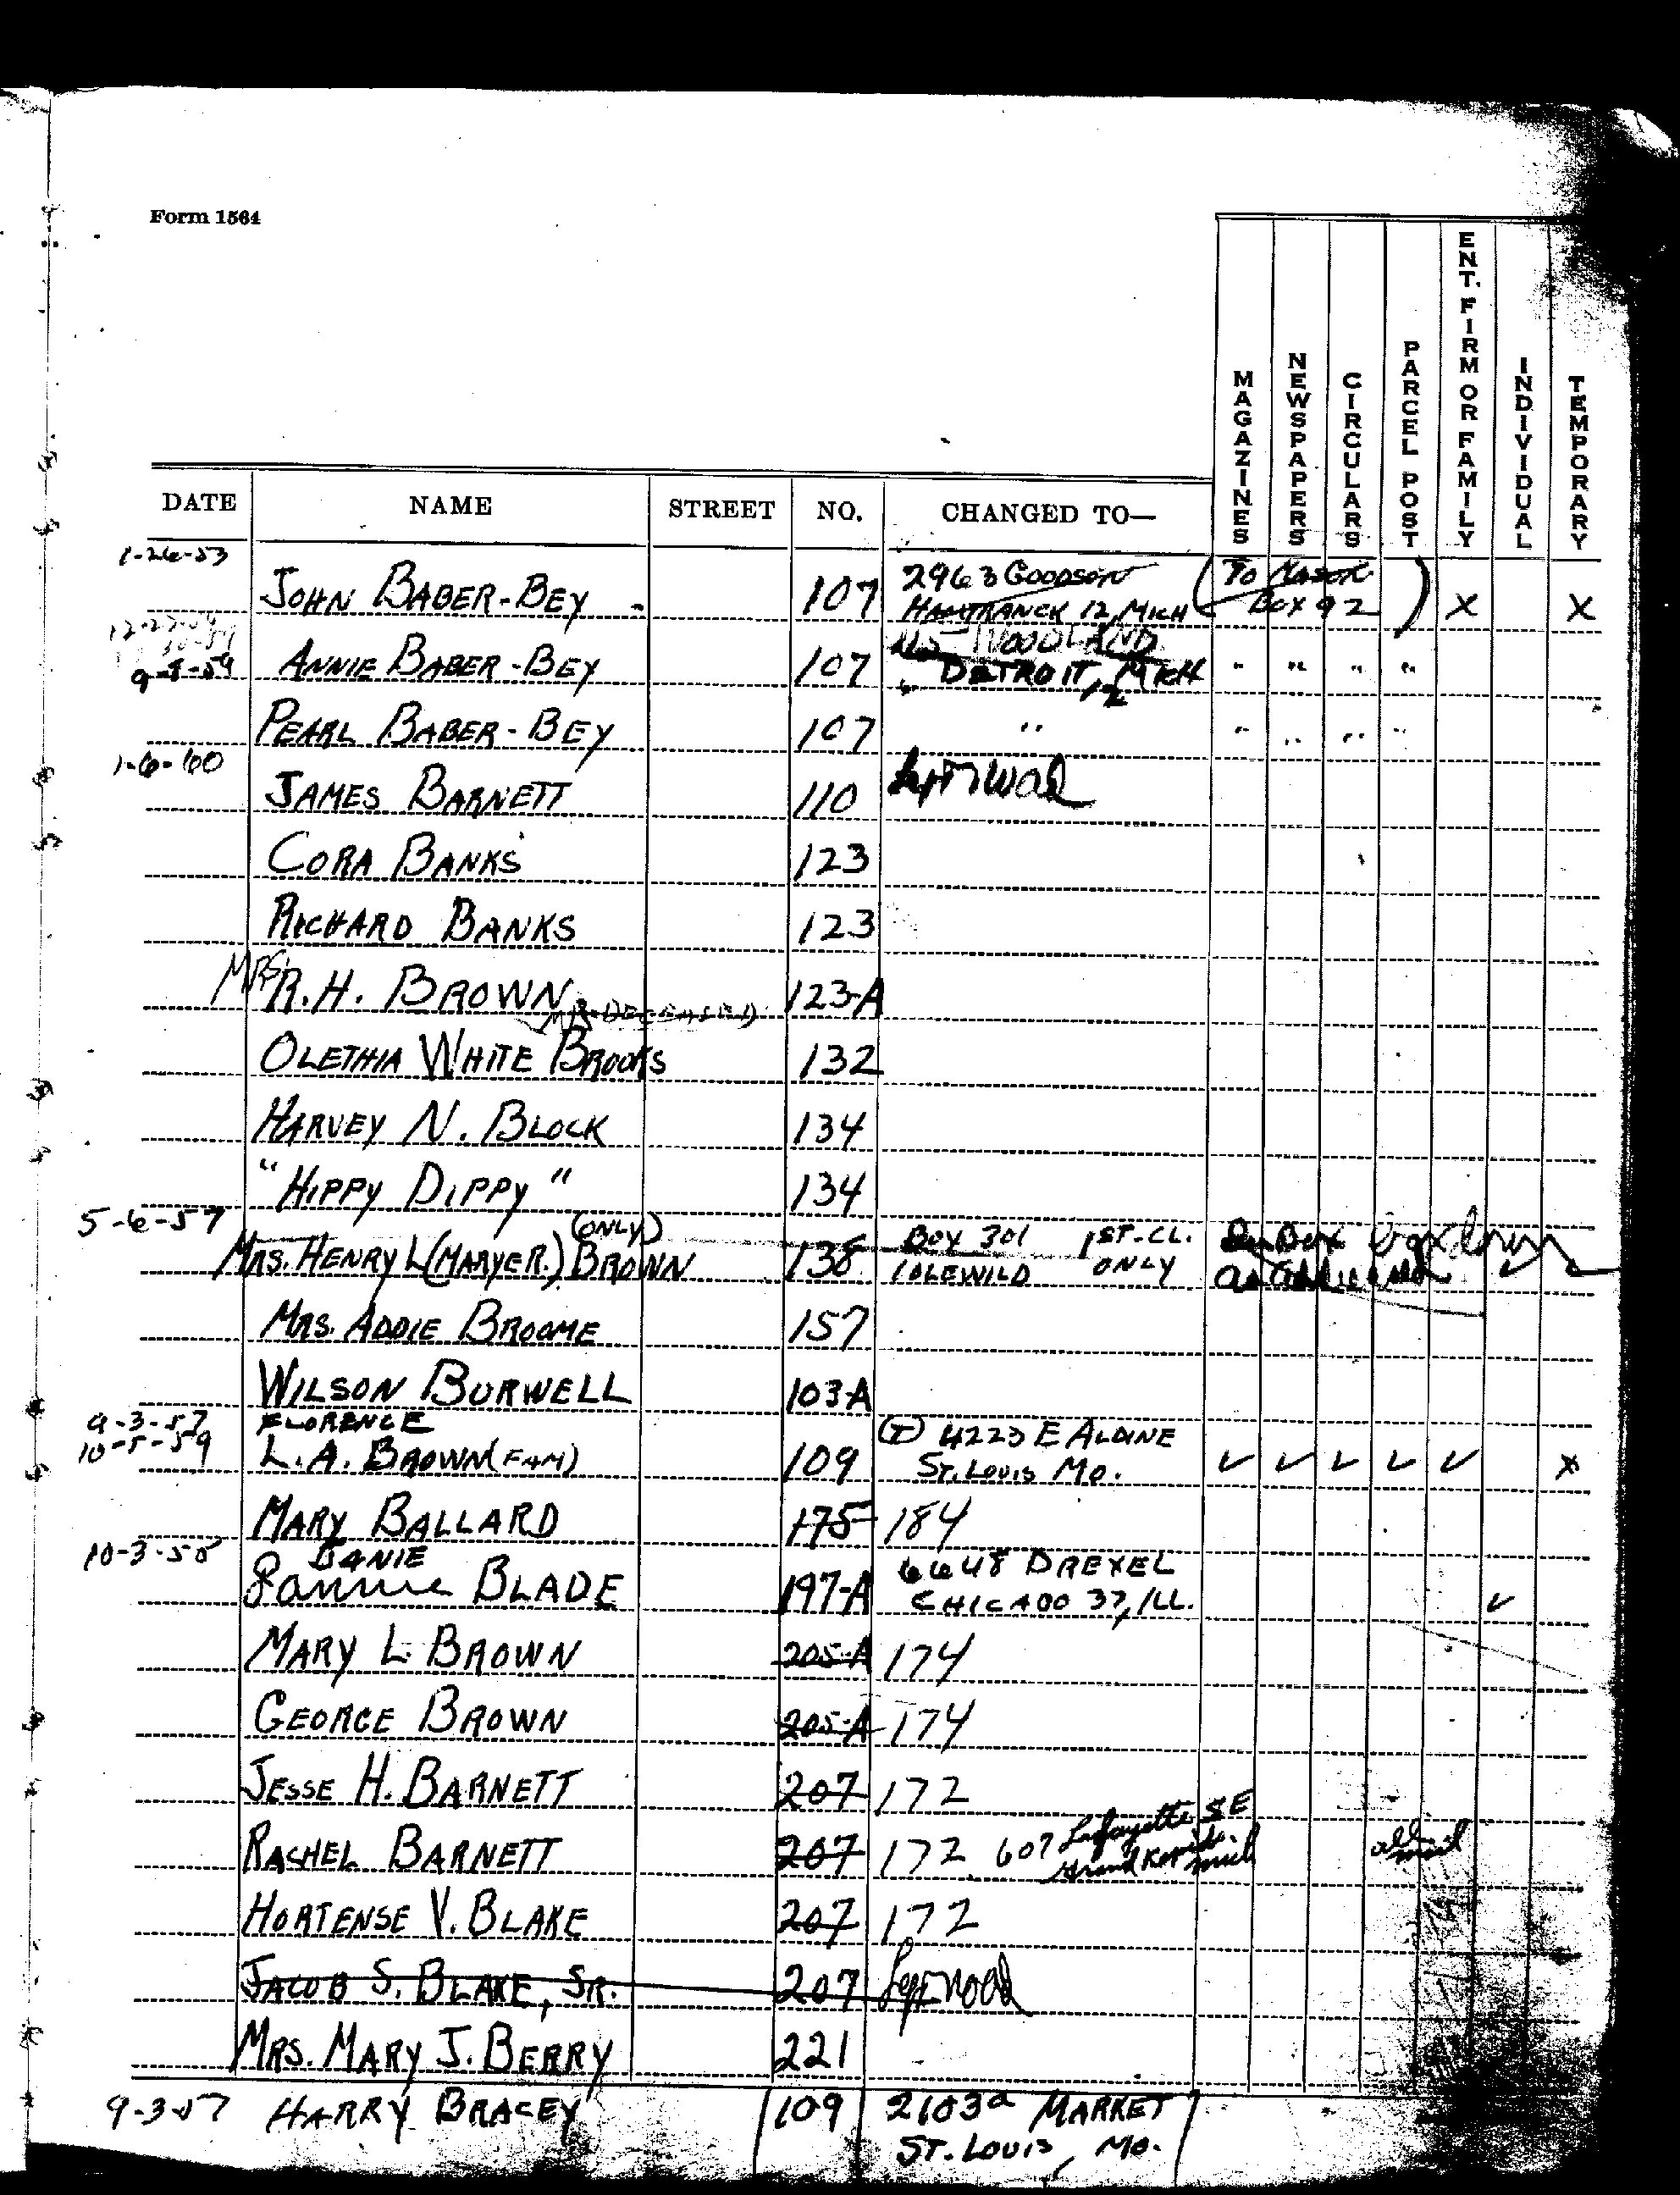 Form 1564
DATE NAME STREET NO. CHANGED TO— MAGAZINES NEWSPAPERS CIRCULARS PARCEL POST ENT. FIRM OR FAMILY INDIVIDUAL TEMPORARY
1-26-53 2963 GOODSON (TO MASON
JOHN BABER-BEY - 107 HAMTRANCK 12, MICH BOX 92 ) X X
WOODLAND
9-8-59 ANNIE BABER-BEY 107 " DETROIT, 2 MICH " " " "
PEARL BABER-BEY 107 " " " " "
1-6-60
JAMES BARNETT 110
CORA BANKS 123
RICHARD BANKS 123
MRS R.H. BROWN 123-A
MR-DECEASED
OLETHIA WHITE BROOKS 132
HARVEY N. BLOCK 134
"HIPPY DIPPY" 134
5-6-57 (ONLY) BOX 301 1ST.-CL.
MRS. HENRY L (MARYE R.) BROWN 138 IDLEWILD ONLY
MRS. ADDIE BROOME 157
WILSON BURWELL 103-A
9-3-57 FLORENCE (T) 4223 E ALDINE
10-5-59 L.A. BROWN (FAM) 109 ST. LOUIS MO. ✓ ✓ ✓ ✓ ✓ X
MARY BALLARD 175 184
10-3-58 JANIE 6648 DREXEL
BLADE 197-A CHICAGO 37, ILL. ✓
MARY L. BROWN 205-A 174
GEORGE BROWN 205-A 174
JESSE H. BARNETT 207 172
RACHEL BARNETT 207 172 607 Lafayette SE
Grand Rapids. Mich all mail
HORTENSE V. BLAKE 207 172
JACOB S. BLAKE, SR. 207
MRS. MARY J. BERRY 221
9-3-57 HARRY BRACEY 109 2103a MARKET
ST. LOUIS, MO.